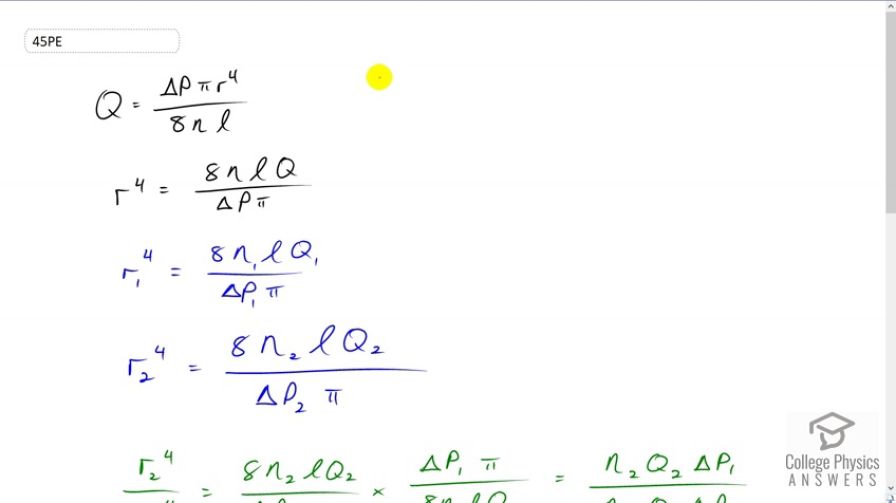 45PE
Q = ΔP π r⁴ / 8 n l
r⁴ = 8 n l Q / ΔP π
r₁⁴ = 8 n₁ l Q₁ / ΔP₁ π
r₂⁴ = 8 n₂ l Q₂ / ΔP₂ π
r₂⁴ = 8 n₂ l Q₂ × ΔP₁ π = n₂ Q₂ ΔP₁
College Physics
ANSWERS